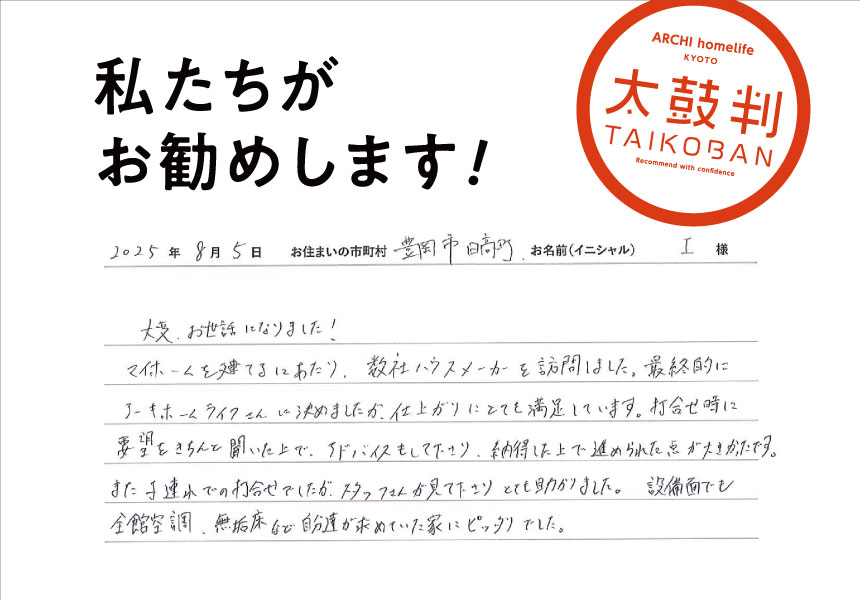 私たちが
お勧めします!
ARCHI homelife
KYOTO
太鼓判
TAIKOBAN
Recommend with confidence
2025 年 8 月 5 日 お住まいの市町村 豊岡市日高町 お名前(イニシャル) I 様
大変、お世話になりました!
マイホームを建てるにあたり、数社ハウスメーカーを訪問しました。最終的に
アーキホームライフさんに決めましたが、仕上がりにとても満足しています。打合せ時に
要望をきちんと聞いた上で、アドバイスもして下さり、納得した上で進められた点が大きかったです。
また子連れでの打合せでしたが、スタッフさんが見て下さりとても助かりました。 設備面でも
全館空調、無垢床など自分達が求めていた家にピッタリでした。